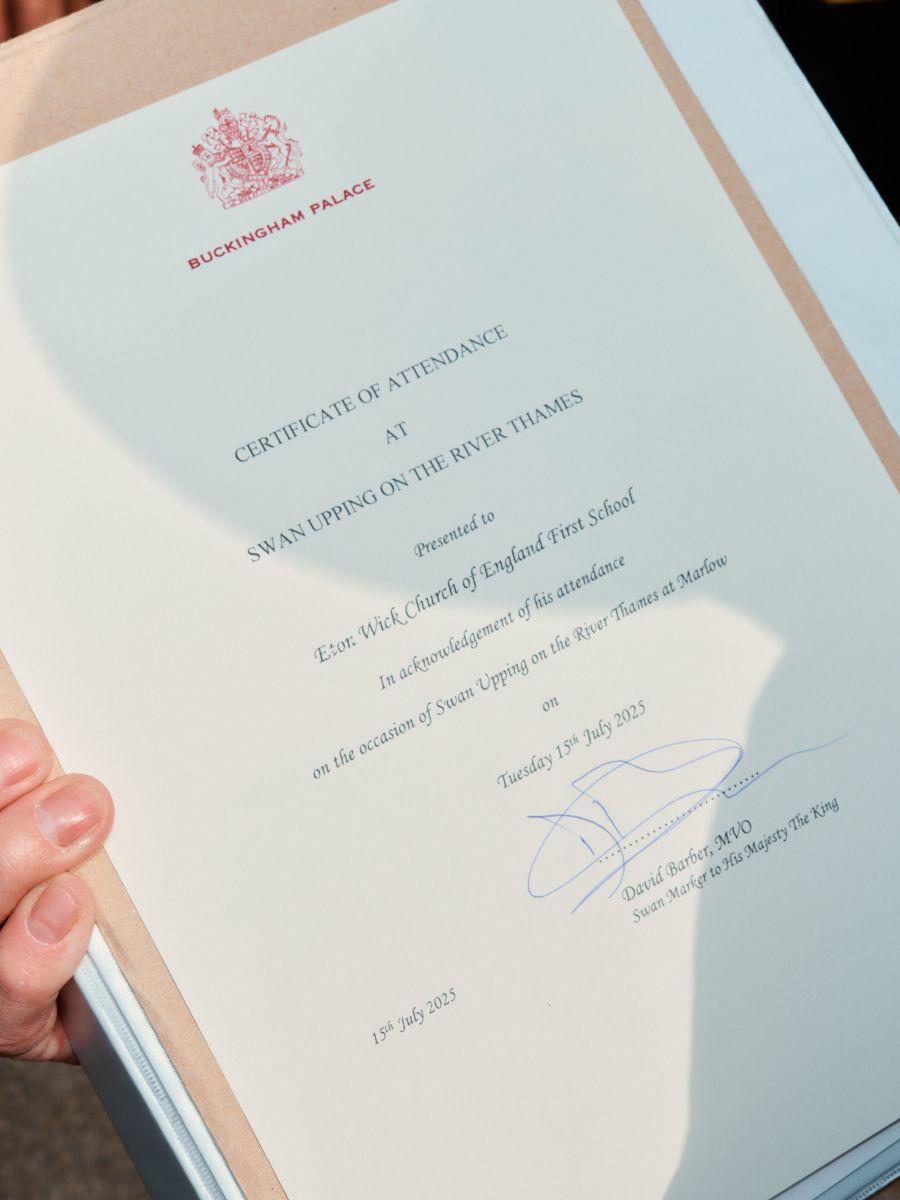 BUCKINGHAM PALACE
CERTIFICATE OF ATTENDANCE
AT
SWAN UPPING ON THE RIVER THAMES
Presented to
Eton Wick Church of England First School
In acknowledgement of his attendance
on the occasion of Swan Upping on the River Thames at Marlow
on
Tuesday 15th July 2025
David Barber, MVO
Swan Marker to His Majesty The King
15th July 2025